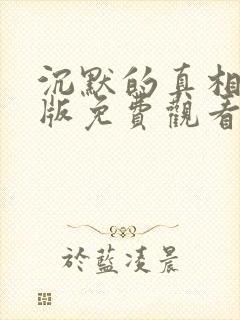 沉默的真相
版免費觀看
於藍凌晨